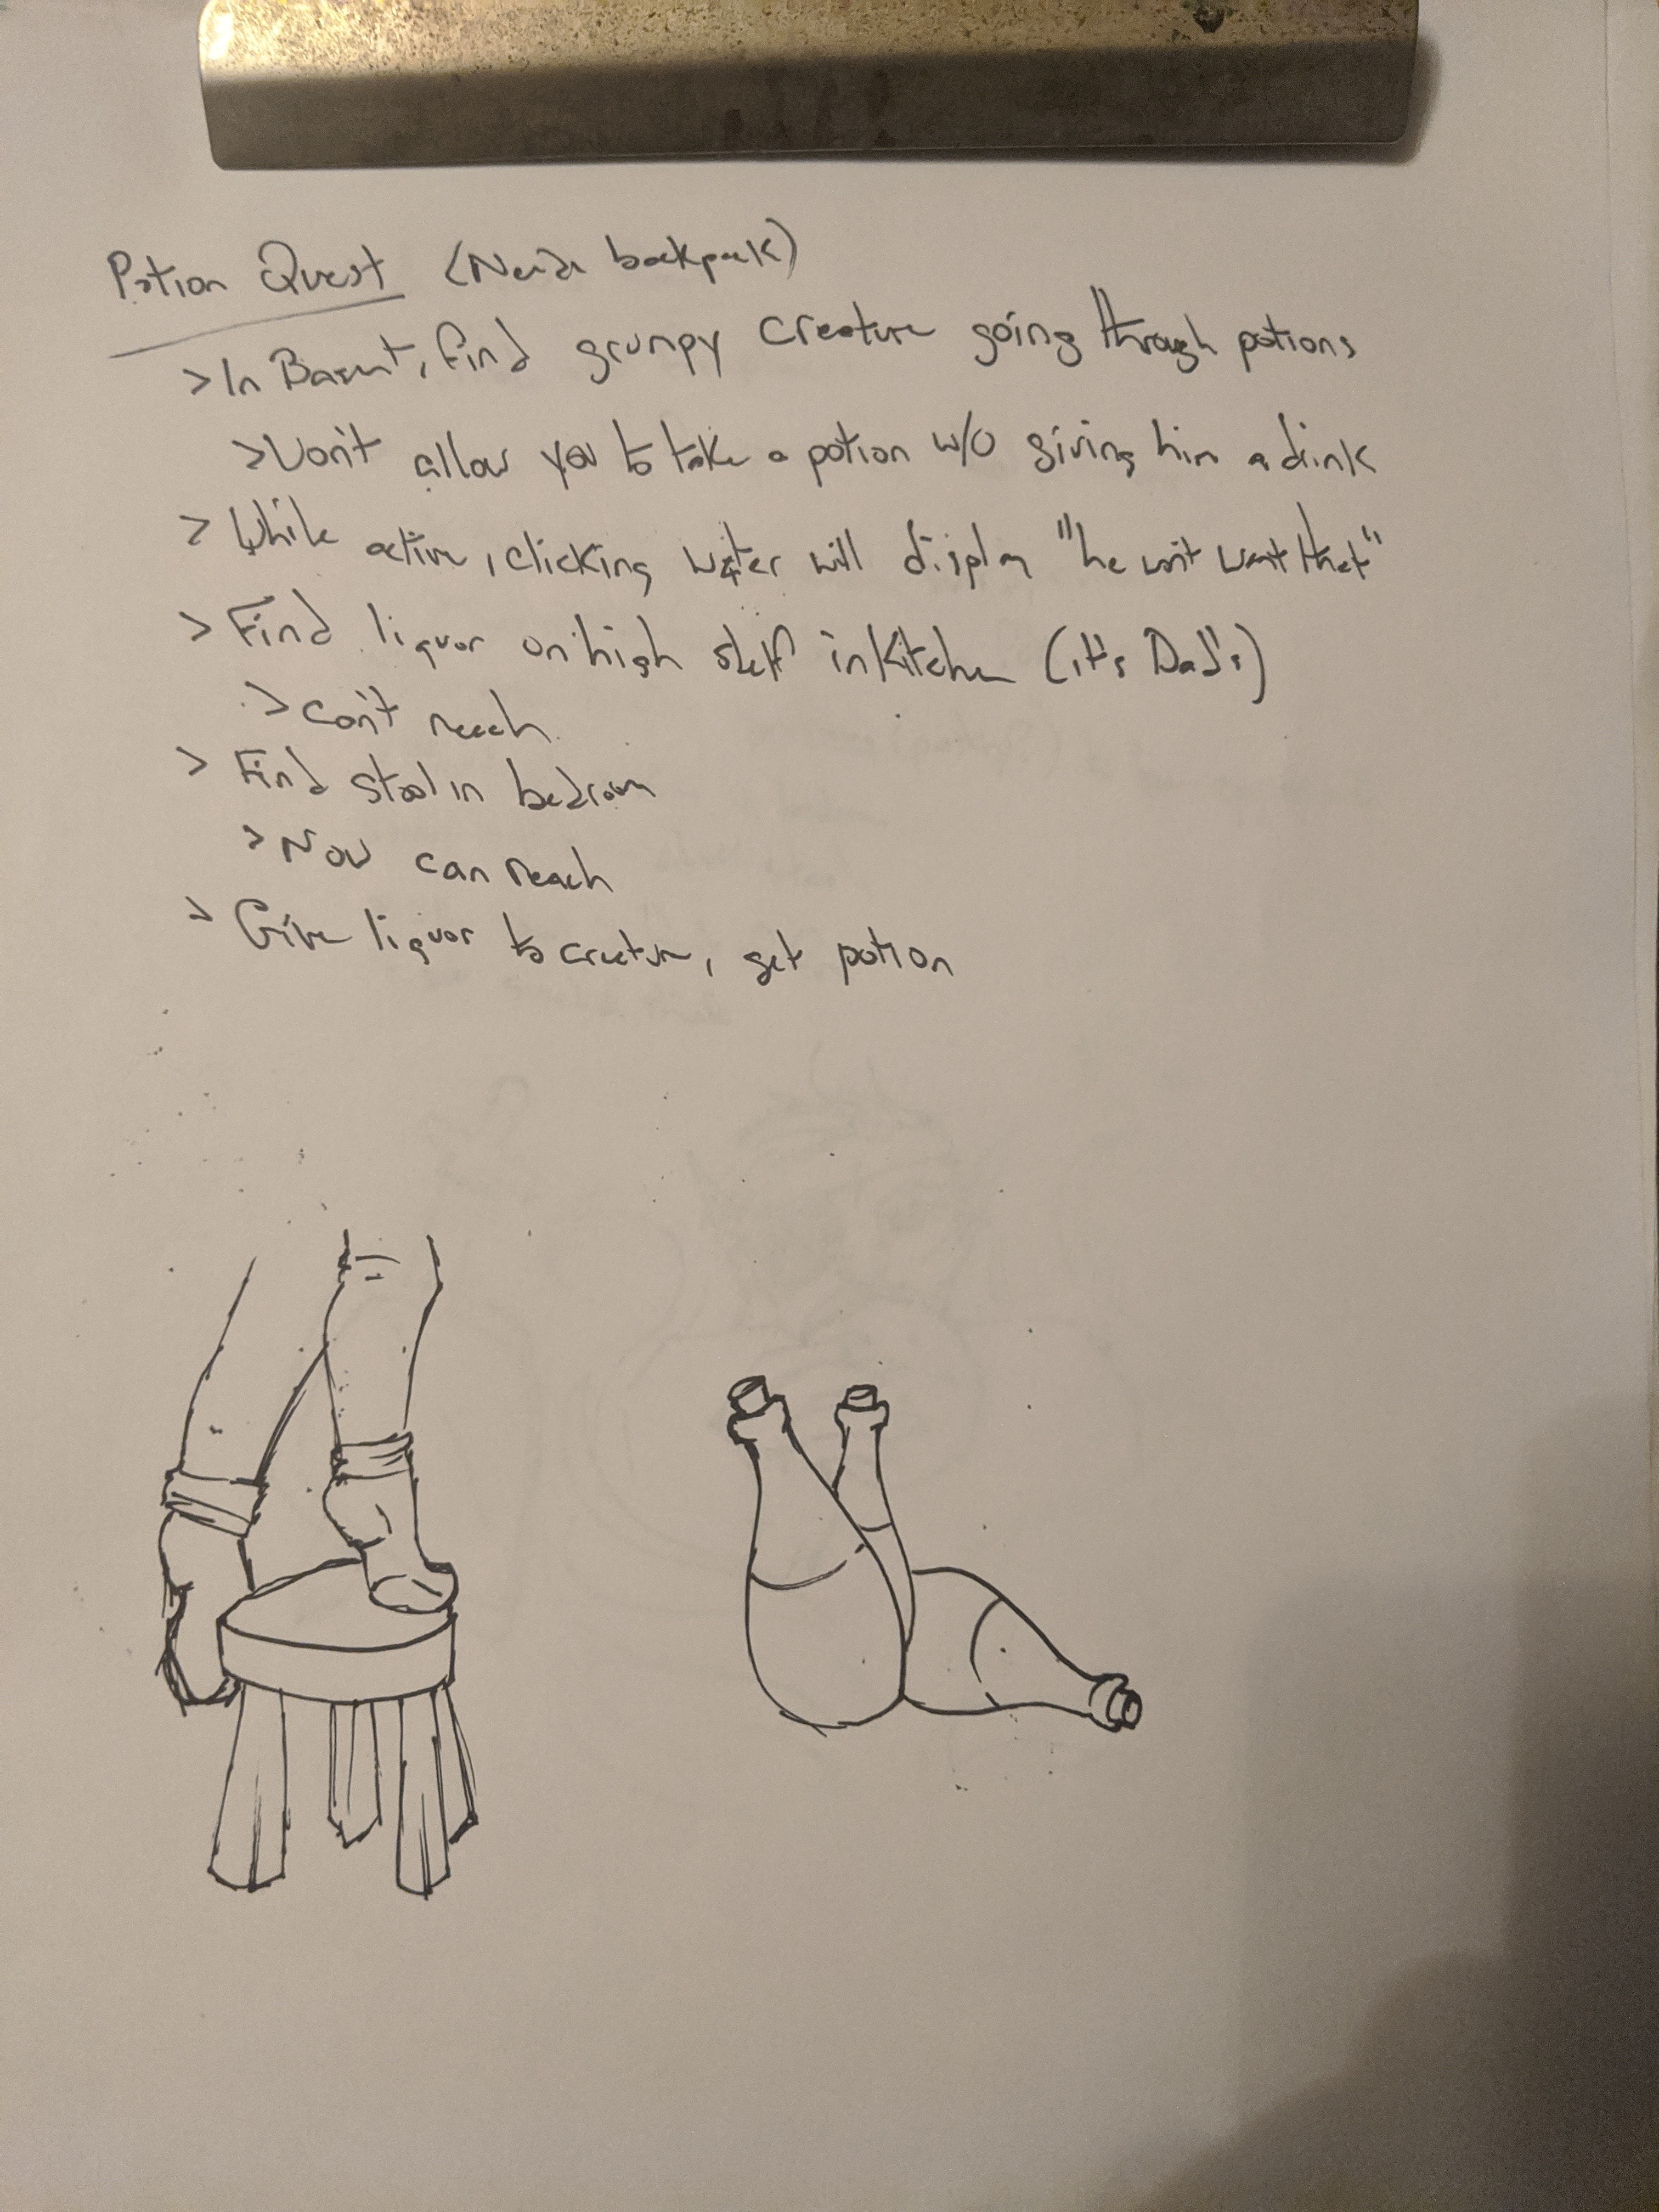 Potion Quest (Needs backpack)
> In Basemt, find grumpy creature going through potions
> Won't allow you to take a potion w/o giving him a drink
> While active, clicking water will display "he won't want that"
> Find liquor on high shelf in Kitchen (it's Dad's)
> can't reach
> Find stool in bedroom
> Now can reach
> Give liquor to creature, get potion